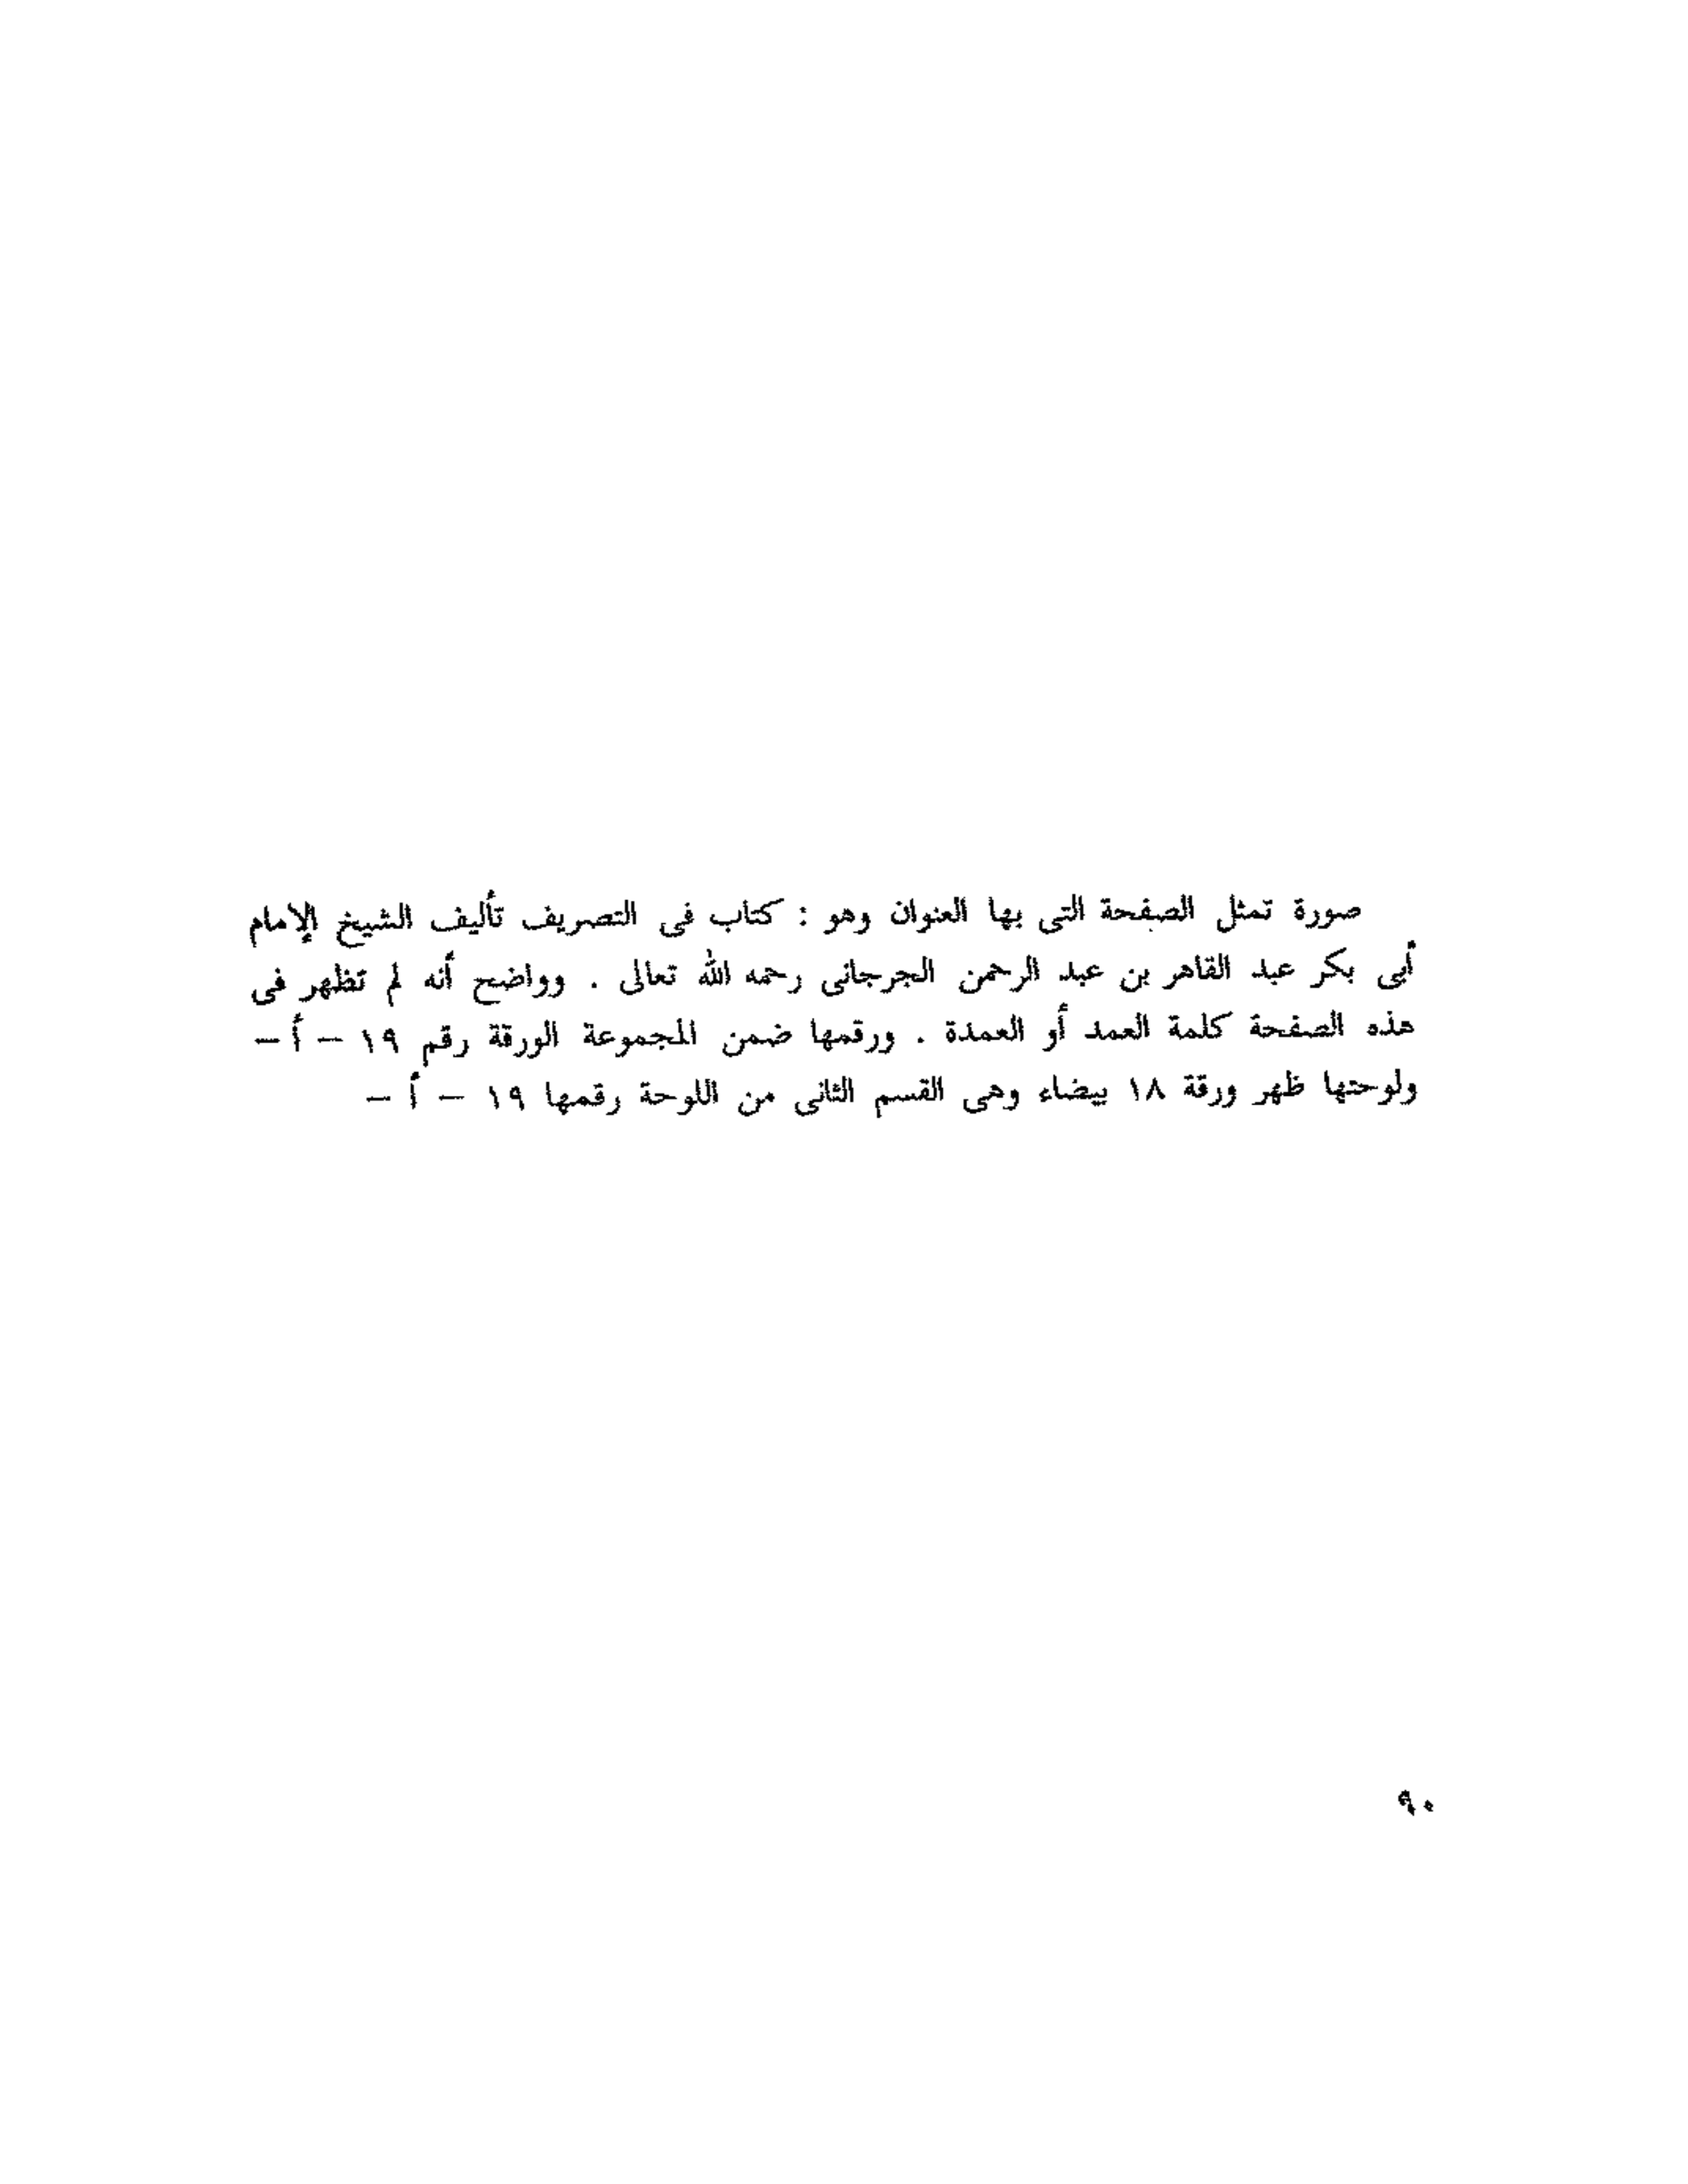 صورة تمثل الصفحة التى بها العنوان وهو : كتاب فى التصريف تأليف الشيخ الإمام
أبى بكر عبد القاهر بن عبد الرحمن الجرجانى رحمه الله تعالى . وواضح أنه لم تظهر فى
هذه الصفحة كلمة العمد أو العمدة . ورقمها ضمن المجموعة الورقة رقم ١٩ – أ –
ولوحتها ظهر ورقة ١٨ بيضاء وهى القسم الثانى من اللوحة رقمها ١٩ – أ –
٩٠